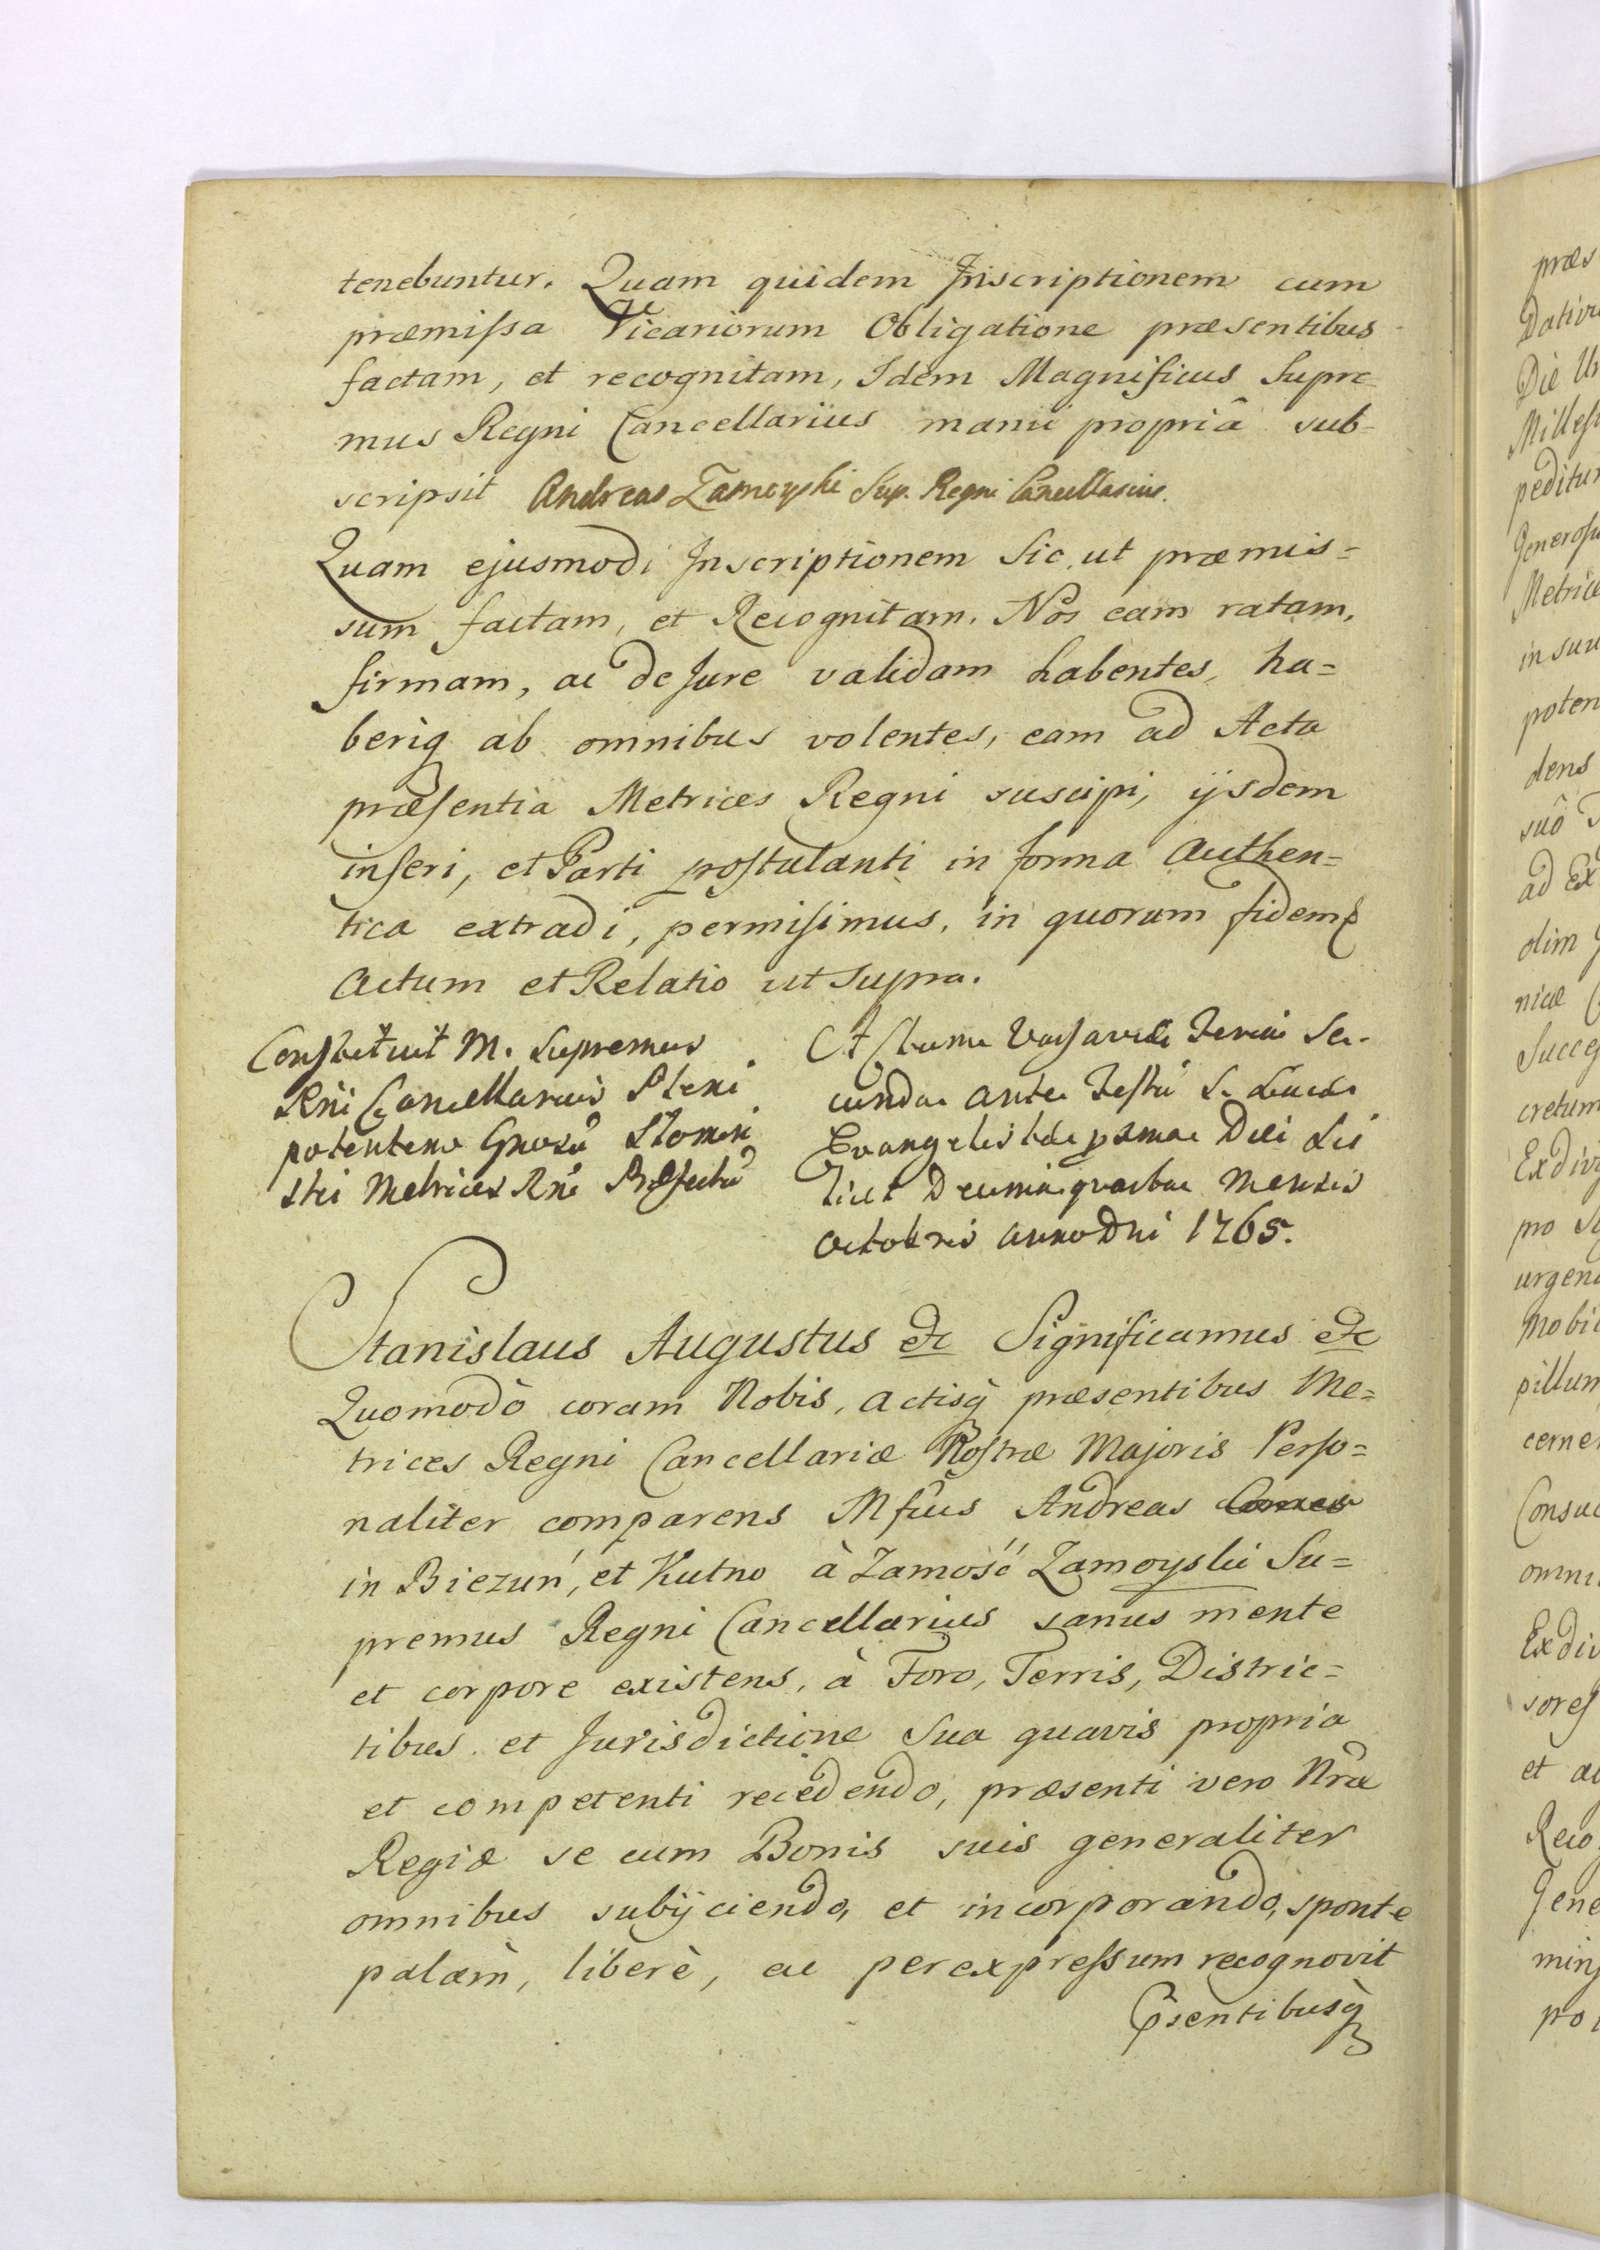 tenebuntur. Quam quidem Inscriptionem cum
præmissa Vicariorum Obligatione præsentibus
factam, et recognitam, Idem Magnificus Supre-
mus Regni Cancellarius manu propriâ sub-
scripsit Andreas Zamoyski Sup. Regni Cancellarius.
Quam ejusmodi Inscriptionem Sic, ut præmis=
sum factam, et Recognitam. Nos eam ratam,
firmam, ac de Jure validam habentes, ha=
beriq ab omnibus volentes, eam ad Acta
præsentia Metrices Regni suscipi, ijsdem
inseri, et Parti postulanti in forma Authen=
tica extradi, permisimus, in quorum fidem
Actum et Relatio ut supra.
Constituit M. Supremus
Rni Cancellarius Pleni
potentem Gnosū
Metrices Rni Præfectū
Actum Varsaviæ Feria Se-
cunda ante Festū S. Lucæ
Evangelistæ
Decima quarta Mensis
Octobris Anno Dni 1765.
Stanislaus Augustus &c Significamus &c
Quomodò coram Nobis, Actisq præsentibus Me=
trices Regni Cancellariæ Nostræ Majoris Perso=
naliter comparens Mfcus Andreas Comes
in Biezuń, et Kutno à Zamość Zamoyski Su=
premus Regni Cancellarius sanus mente
et corpore existens, à Foro, Terris, Distric=
tibus et Jurisdictione Sua quavis propria
et competenti recedendo, præsenti vero Nræ
Regiæ se cum Bonis suis generaliter
omnibus subijciendo, et incorporando, sponte
palàm, liberè, ac per expressum recognovit
Psentibusq